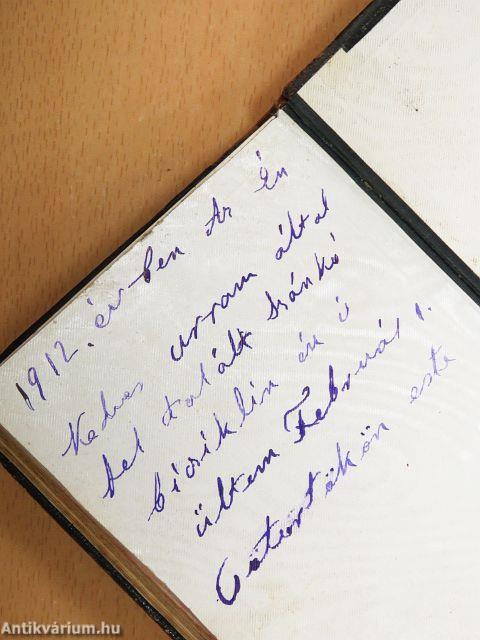 1912. év-ben Az Én
Kedves urram által
fel talált Szánkó
biciklin én is
ültem Február 1.
Csturtökön este
Antikvárium.hu